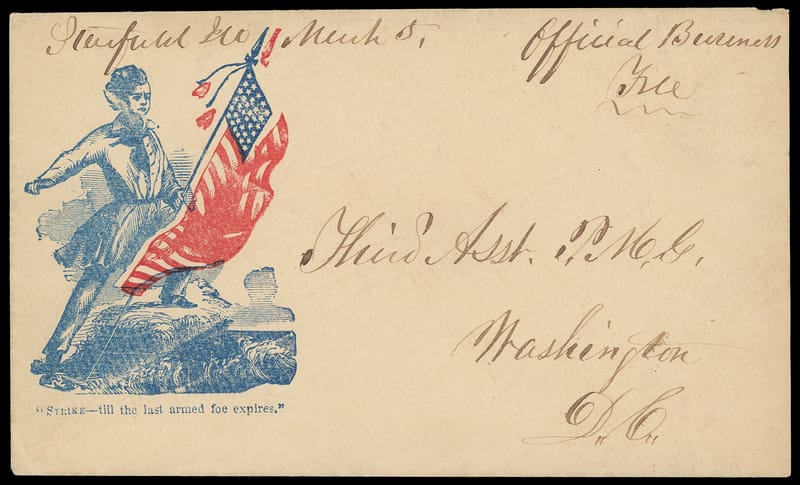 March 5,
Official Business
Free
Third Asst. P.M.G.
Washington
D.C.
"STRIKE—till the last armed foe expires."